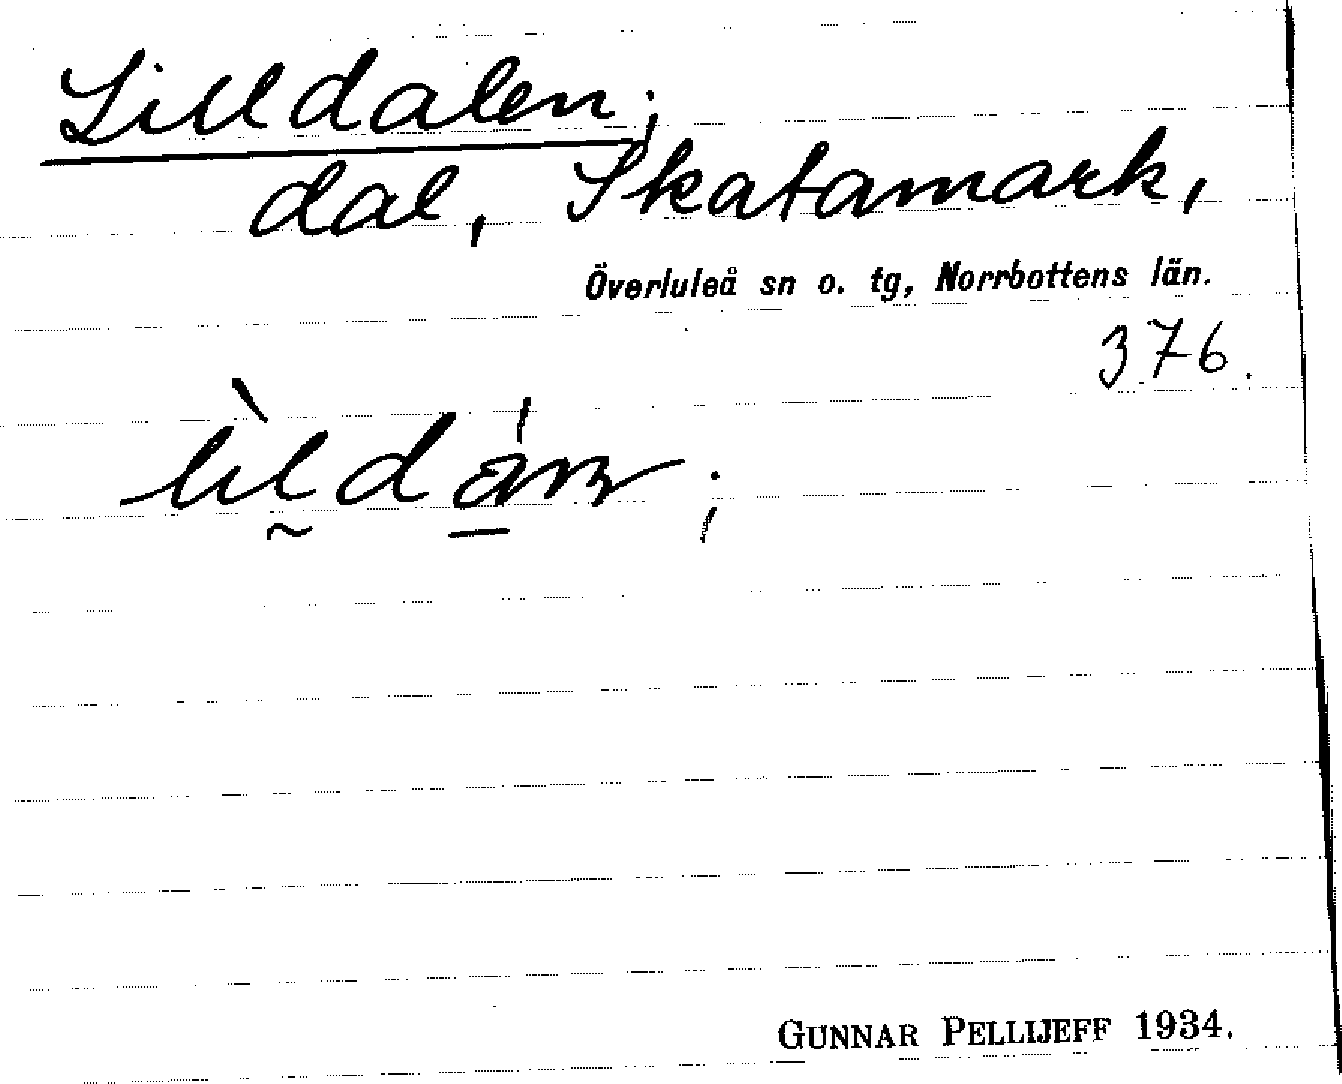 Lilldalen;
dal, Skatamark,
Överluleå sn o. tg, Norrbottens län.
376.
GUNNAR PELLIJEFF 1934.